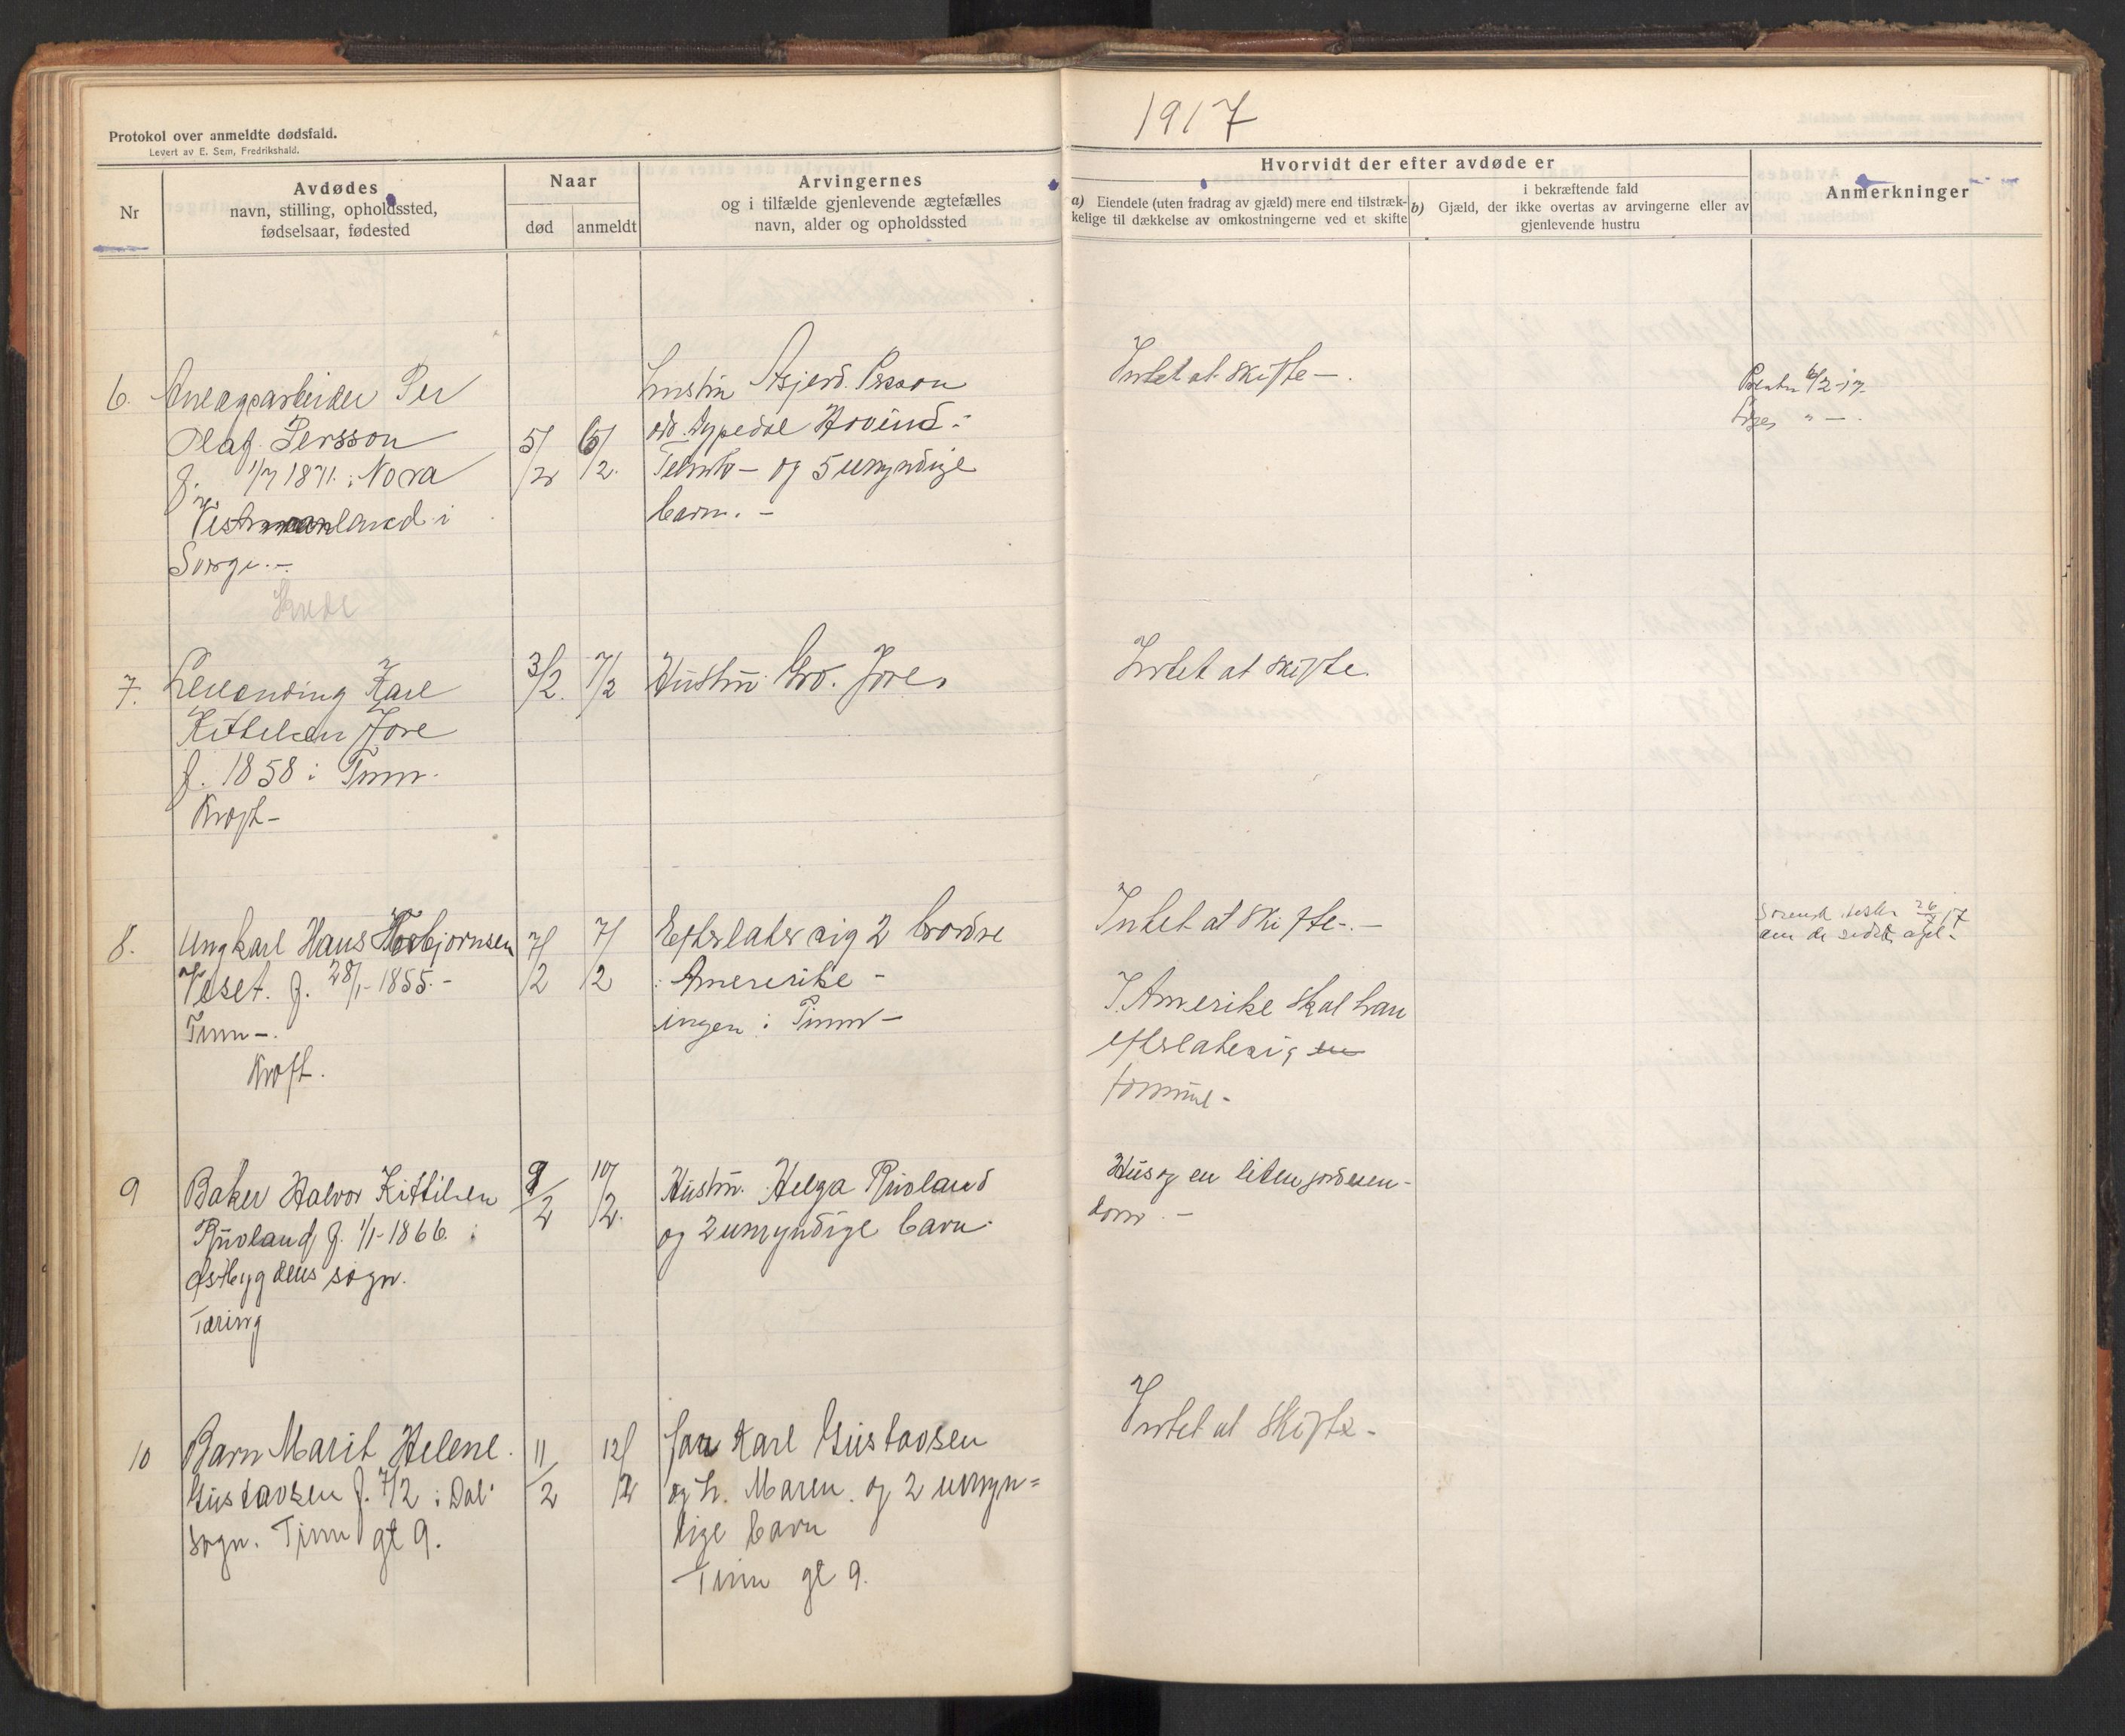 Protokol over anmeldte dødsfald.
Levert av E. Sem, Fredrikshald.
1917
Nr
Avdødes
navn, stilling, opholdssted,
fødselsaar, fødested
Naar
død
anmeldt
Arvingernes
og i tilfælde gjenlevende ægtefælles
navn, alder og opholdssted
Hvorvidt der efter avdøde er
a) Eiendele (uten fradrag av gjæld) mere end tilstræk-
kelige til dækkelse av omkostningerne ved et skifte
i bekræftende fald
b) Gjæld, der ikke overtas av arvingerne eller av
gjenlevende hustru
Anmerkninger
6. Anlægsarbeider Per
Olaf Persson
f. 1/7 1871 i Nora
Vestmanland i
5/2
6/2.
hustru Persson
Hovind
og 5 umyndige
barn. -
Intet at skifte -.
6/2-17.
7.
Kittelsen Jore
f. 1858 i Tinn.
Kræft-
3/2.
7/2
Hustru Gro. Jore
Intet at skifte
8. Ungkarl Hans Torbjørnsen
Veset. f. 28/1-1855.-
Tinn-.
Kræft.
7/2
7/2
Efterlater sig 2 brødre
i Amererike -
ingen i Tinn -
Intet at skifte-.-
I Amerike skal han
efterlate sig en
formue -
26/7 17
9 Baker Halvor Kittilsen
Rueland f. 1/1-1866. i
Østbygdens sogn.
Tæring
9/2
10/2.
Hustru. Helga Rueland
og 2 umyndige barn.
Hus og en liten jordeien-
dom. -
10 Barn Marit Helene.
Gustavsen f. 7/2 i Dal
sogn. Tinn gt 9.
11/2
12/2
far Karl Gustavsen
og h. Maren. og 2 umyn=
dige barn
Tinn gt 9.
Intet at skifte -